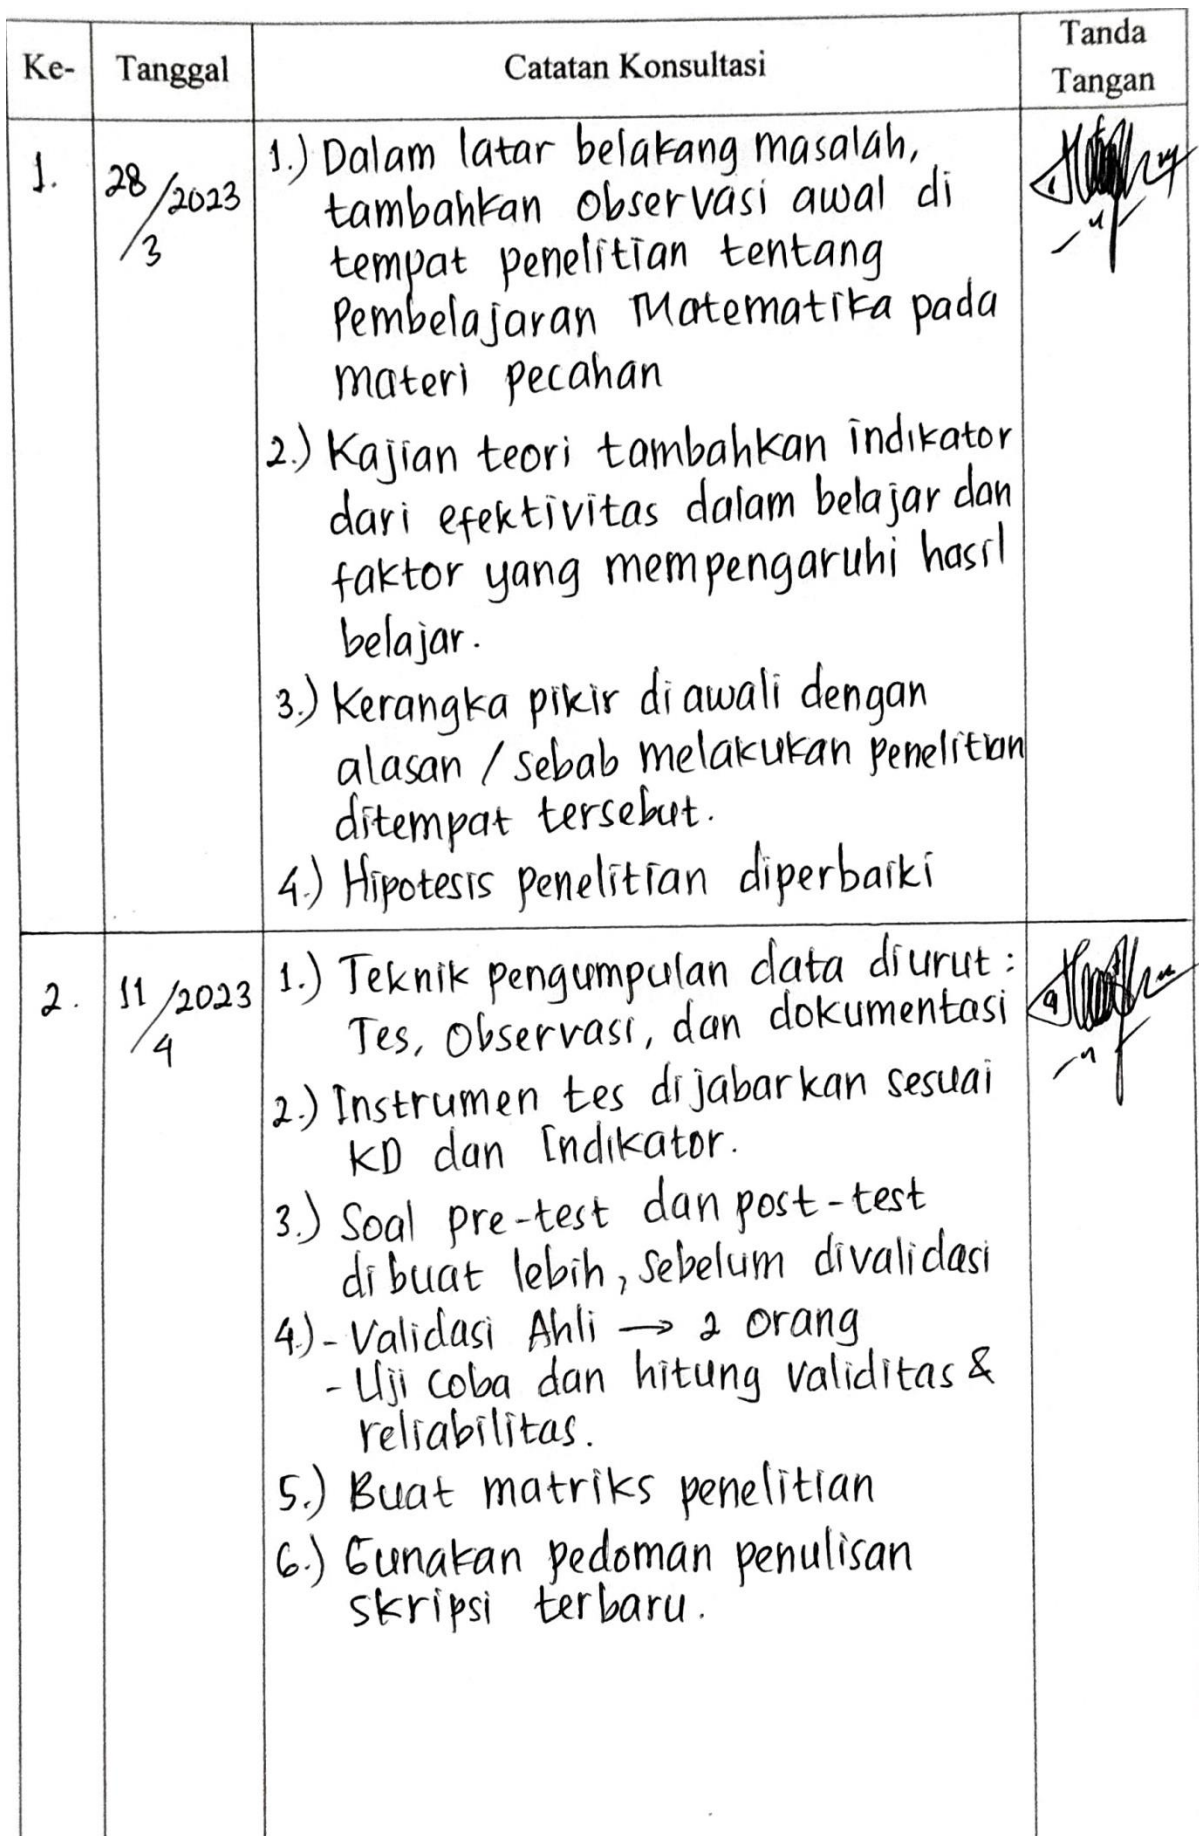 Ke- Tanggal Catatan Konsultasi Tanda Tangan
1. 28/3/2023 1.) Dalam latar belakang masalah,
tambahkan observasi awal di
tempat penelitian tentang
Pembelajaran Matematika pada
materi pecahan
2.) Kajian teori tambahkan indikator
dari efektivitas dalam belajar dan
faktor yang mempengaruhi hasil
belajar.
3.) Kerangka pikir diawali dengan
alasan / sebab melakukan penelitian
ditempat tersebut.
4.) Hipotesis penelitian diperbaiki
2. 11/4/2023 1.) Teknik pengumpulan data diurut :
Tes, Observasi, dan dokumentasi
2.) Instrumen tes dijabarkan sesuai
KD dan Indikator.
3.) Soal pre-test dan post-test
dibuat lebih, sebelum divalidasi
4.) - Validasi Ahli → 2 orang
- Uji coba dan hitung validitas &
reliabilitas.
5.) Buat matriks penelitian
6.) Gunakan pedoman penulisan
skripsi terbaru.